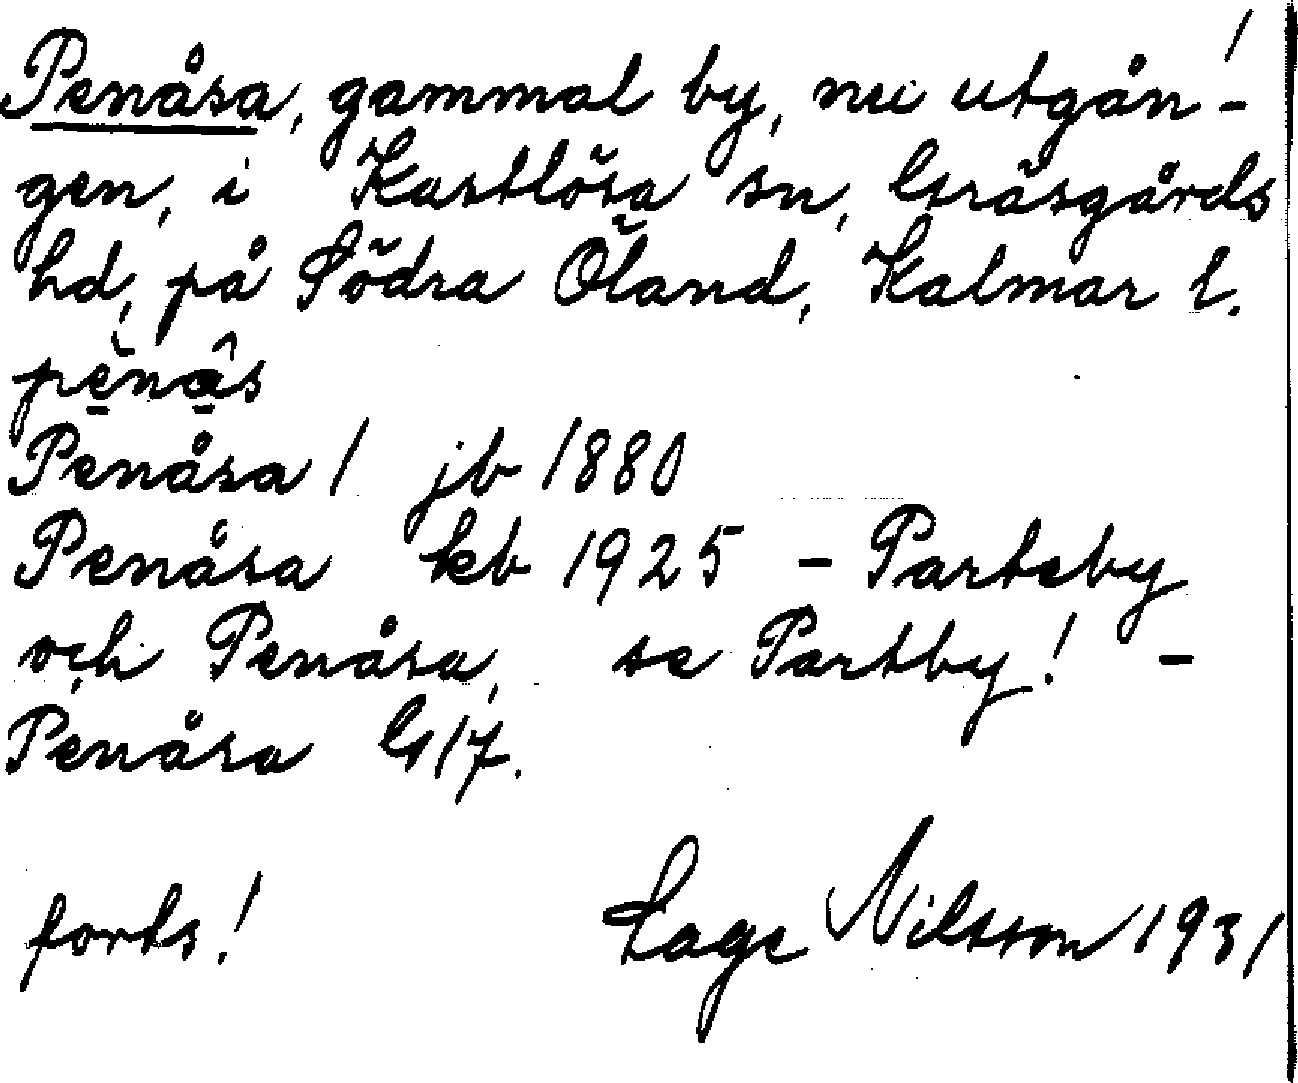 Penåsa, gammal by, nu utgån- /
gen, i Kastlösa sn, Gräsgårds
hd, på Södra Öland, Kalmar l.
Penåsa 1 jb 1880
Penåsa kb 1925 – Parteby
och Penåsa, se Partby! –
Penåsa G 17.
forts! Sage Nilsson 1931